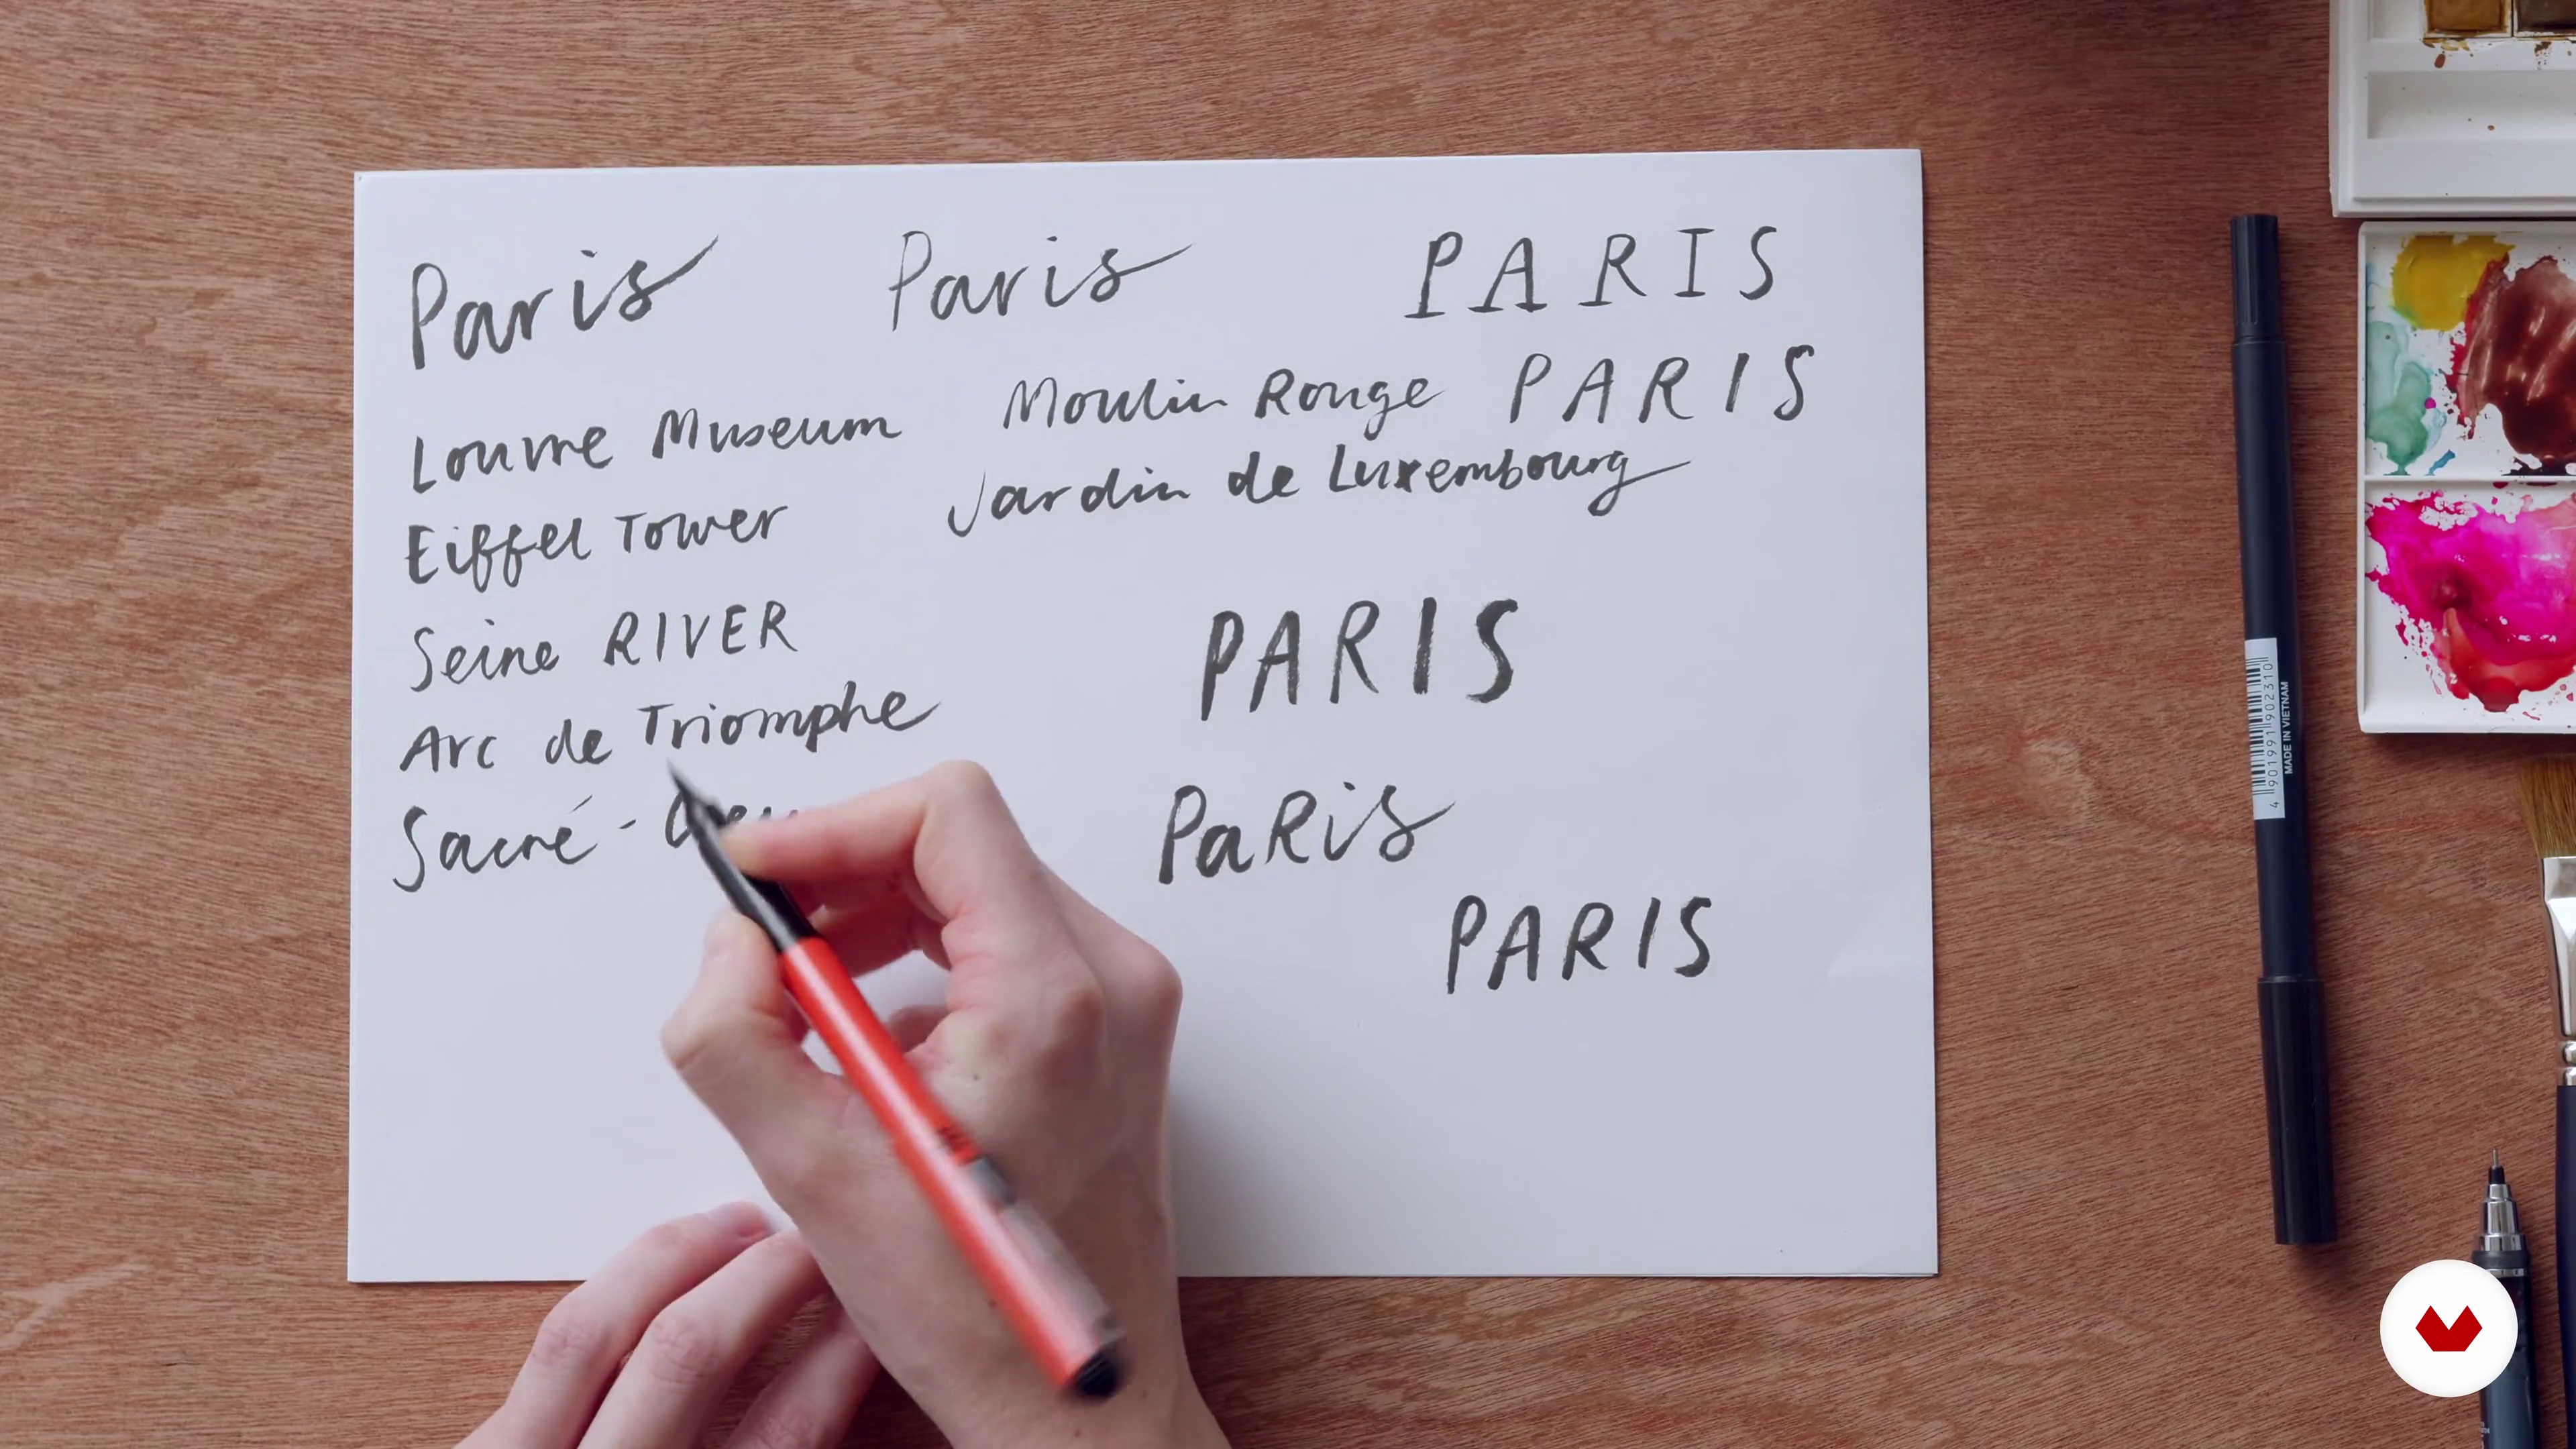 Paris Paris PARIS
Louvre Museum Moulin Rouge PARIS
Jardin de Luxembourg
Eiffel Tower
Seine RIVER PARIS
Arc de Triomphe
Sacré-
PaRis
PARIS
4901991902310
MADE IN VIETNAM